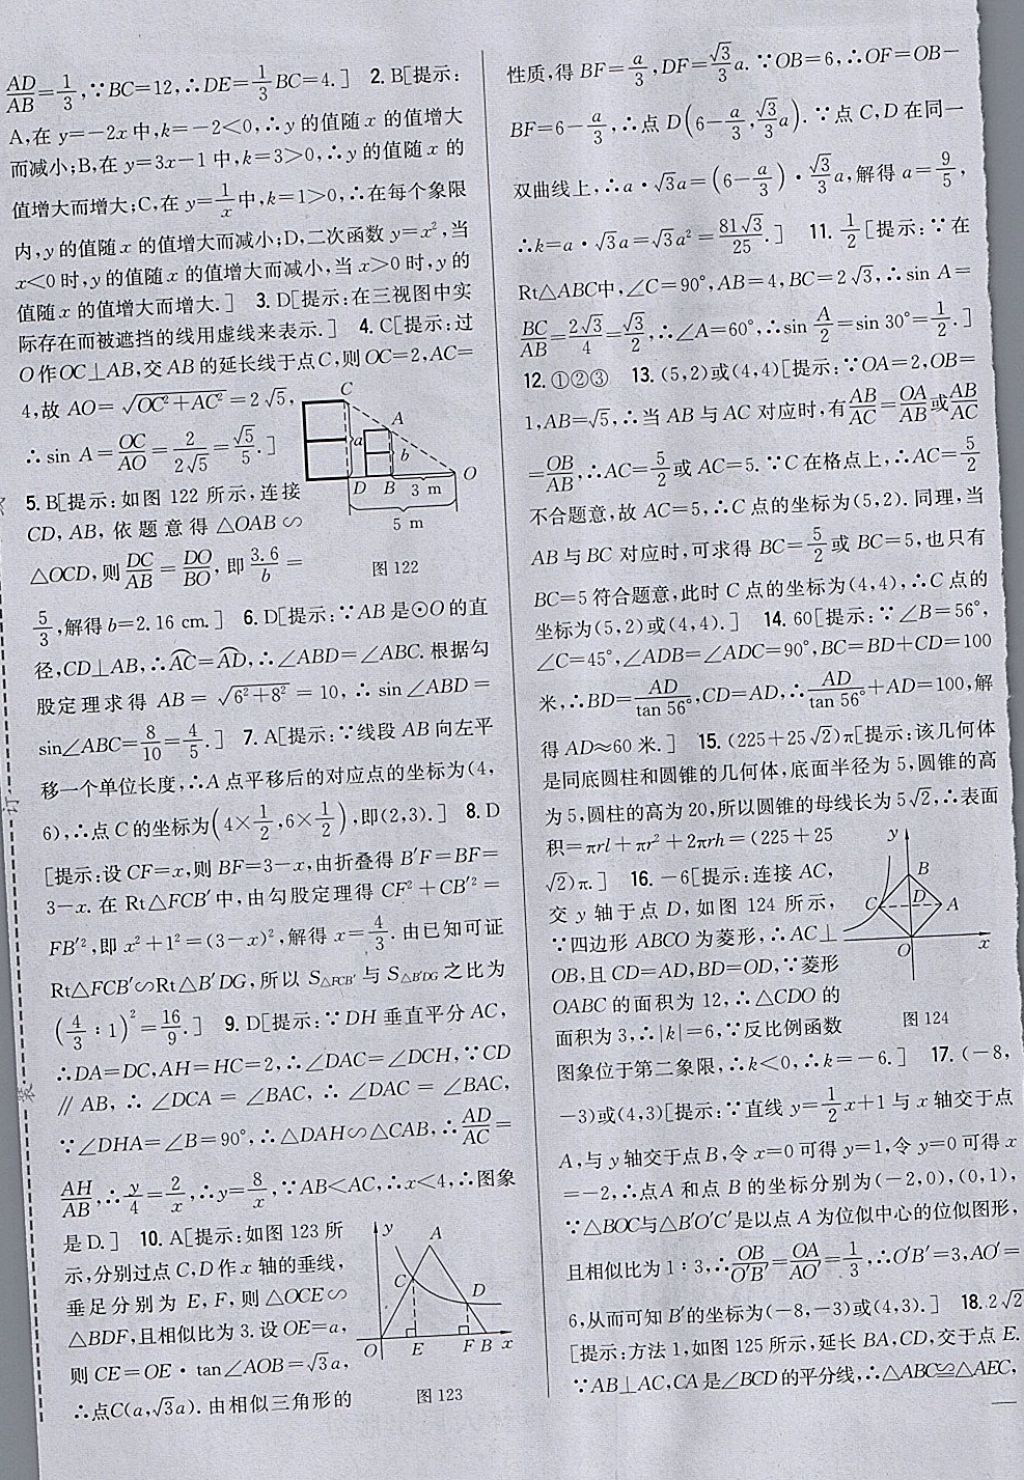 AD/AB=1/3,∵BC=12,∴DE=1/3BC=4.] 2. B[提示:
A,在 y=−2x 中,k=−2<0,∴y 的值随 x 的值增大
而减小;B,在 y=3x−1 中,k=3>0,∴y 的值随 x 的
值增大而增大;C,在 y=1/x中,k=1>0,∴在每个象限
内,y的值随 x 的值增大而减小;D,二次函数 y=x²,当
x<0 时,y 的值随 x 的值增大而减小,当 x>0 时,y 的
值随 x 的值增大而增大.] 3. D[提示:在三视图中实
际存在而被遮挡的线用虚线来表示.] 4. C[提示:过
O作OC⊥AB,交 AB 的延长线于点 C,则 OC=2,AC=
4,故 AO=√(OC²+AC²)=2√5,
∴sin A=OC/AO=2/(2√5)=√5/5.]
5. B[提示:如图 122 所示,连接
CD, AB, 依题意得 △OAB∽
△OCD,则DC/AB=DO/BO,即3.6/b=
C
A
a
b
O
D B 3 m
5 m
图 122
5/3,解得 b=2.16 cm.] 6. D[提示:∵AB 是⊙O 的直
径,CD⊥AB,∴⌒AC=⌒AD,∴∠ABD=∠ABC. 根据勾
股定理求得 AB=√(6²+8²)=10,∴sin∠ABD=
sin∠ABC=8/10=4/5.] 7. A[提示:∵线段 AB 向左平
移一个单位长度,∴A 点平移后的对应点的坐标为(4,
6),∴点 C 的坐标为(4×1/2,6×1/2),即(2,3).] 8. D
[提示:设 CF=x,则 BF=3−x,由折叠得 B′F=BF=
3−x. 在 Rt△FCB′中,由勾股定理得 CF²+CB′²=
FB′²,即 x²+1²=(3−x)²,解得 x=4/3. 由已知可证
Rt△FCB′∽Rt△B′DG,所以 S△FCB′与 S△B′DG之比为
(4/3∶1)²=16/9.] 9. D[提示:∵DH 垂直平分 AC,
∴DA=DC,AH=HC=2,∴∠DAC=∠DCH,∵CD
∥AB,∴∠DCA=∠BAC,∴∠DAC=∠BAC,
∵∠DHA=∠B=90°,∴△DAH∽△CAB,∴AD/AC=
AH/AB,∴y/4=2/x,∴y=8/x,∵AB<AC,∴x<4,∴图象
是 D.] 10. A[提示:如图 123 所
示,分别过点 C,D 作 x 轴的垂线,
垂足分别为 E, F, 则 △OCE∽
△BDF,且相似比为 3. 设 OE=a,
则 CE=OE·tan∠AOB=√3a,
∴点C(a,√3a). 由相似三角形的
y
A
C
D
O E F B x
图 123
性质,得 BF=a/3,DF=√3/3a. ∵OB=6,∴OF=OB−
BF=6−a/3,∴点 D(6−a/3,√3/3a). ∵点 C,D 在同一
双曲线上,∴a·√3a=(6−a/3)·√3/3a,解得 a=9/5,
∴k=a·√3a=√3a²=81√3/25.] 11. 1/2[提示:∵在
Rt△ABC中,∠C=90°,AB=4,BC=2√3,∴sin A=
BC/AB=2√3/4=√3/2,∴∠A=60°,∴sin A/2=sin 30°=1/2.]
12. ①②③ 13. (5,2)或(4,4)[提示:∵OA=2,OB=
1,AB=√5,∴当 AB 与 AC 对应时,有AB/AC=OA/AB或AB/AC
=OB/AB,∴AC=5/2或 AC=5. ∵C 在格点上,∴AC=5/2
不合题意,故 AC=5,∴C 点的坐标为(5,2). 同理,当
AB 与 BC 对应时,可求得 BC=5/2或 BC=5,也只有
BC=5 符合题意,此时 C 点的坐标为(4,4),∴C 点的
坐标为(5,2)或(4,4).] 14. 60[提示:∵∠B=56°,
∠C=45°,∠ADB=∠ADC=90°,BC=BD+CD=100
米,∴BD=AD/tan 56°,CD=AD,∴AD/tan 56°+AD=100,解
得 AD≈60 米.] 15. (225+25√2)π[提示:该几何体
是同底圆柱和圆锥的几何体,底面半径为 5,圆锥的高
为 5,圆柱的高为 20,所以圆锥的母线长为 5√2,∴表面
积=πrl+πr²+2πrh=(225+25
√2)π.] 16. −6[提示:连接 AC,
交 y 轴于点 D,如图 124 所示,
∵四边形 ABCO 为菱形,∴AC⊥
OB,且 CD=AD,BD=OD,∵菱形
OABC 的面积为 12,∴△CDO 的
面积为 3,∴|k|=6,∵反比例函数
y
B
C D A
O x
图 124
图象位于第二象限,∴k<0,∴k=−6.] 17. (−8,
−3)或(4,3)[提示:∵直线 y=1/2x+1 与 x 轴交于点
A,与 y 轴交于点 B,令 x=0 可得 y=1,令 y=0 可得 x
=−2,∴点 A 和点 B 的坐标分别为(−2,0),(0,1),
∵△BOC与△B′O′C′是以点 A 为位似中心的位似图形,
且相似比为 1∶3,∴OB/O′B′=OA/AO′=1/3,∴O′B′=3,AO′=
6,从而可知 B′的坐标为(−8,−3)或(4,3).] 18. 2√2
[提示:方法 1,如图 125 所示,延长 BA,CD,交于点 E.
∵AB⊥AC,CA是∠BCD的平分线,∴△ABC≌△AEC,
订
装